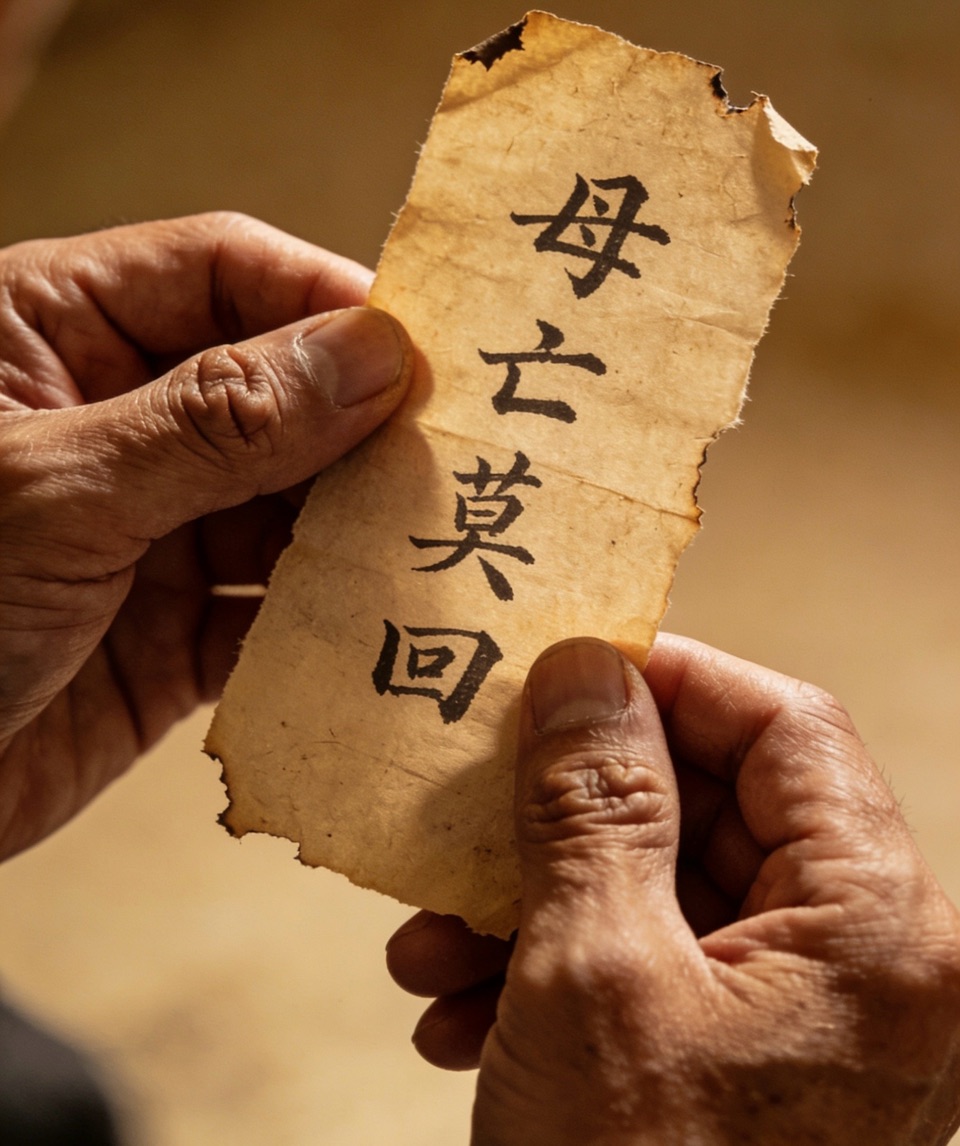 母亡莫回